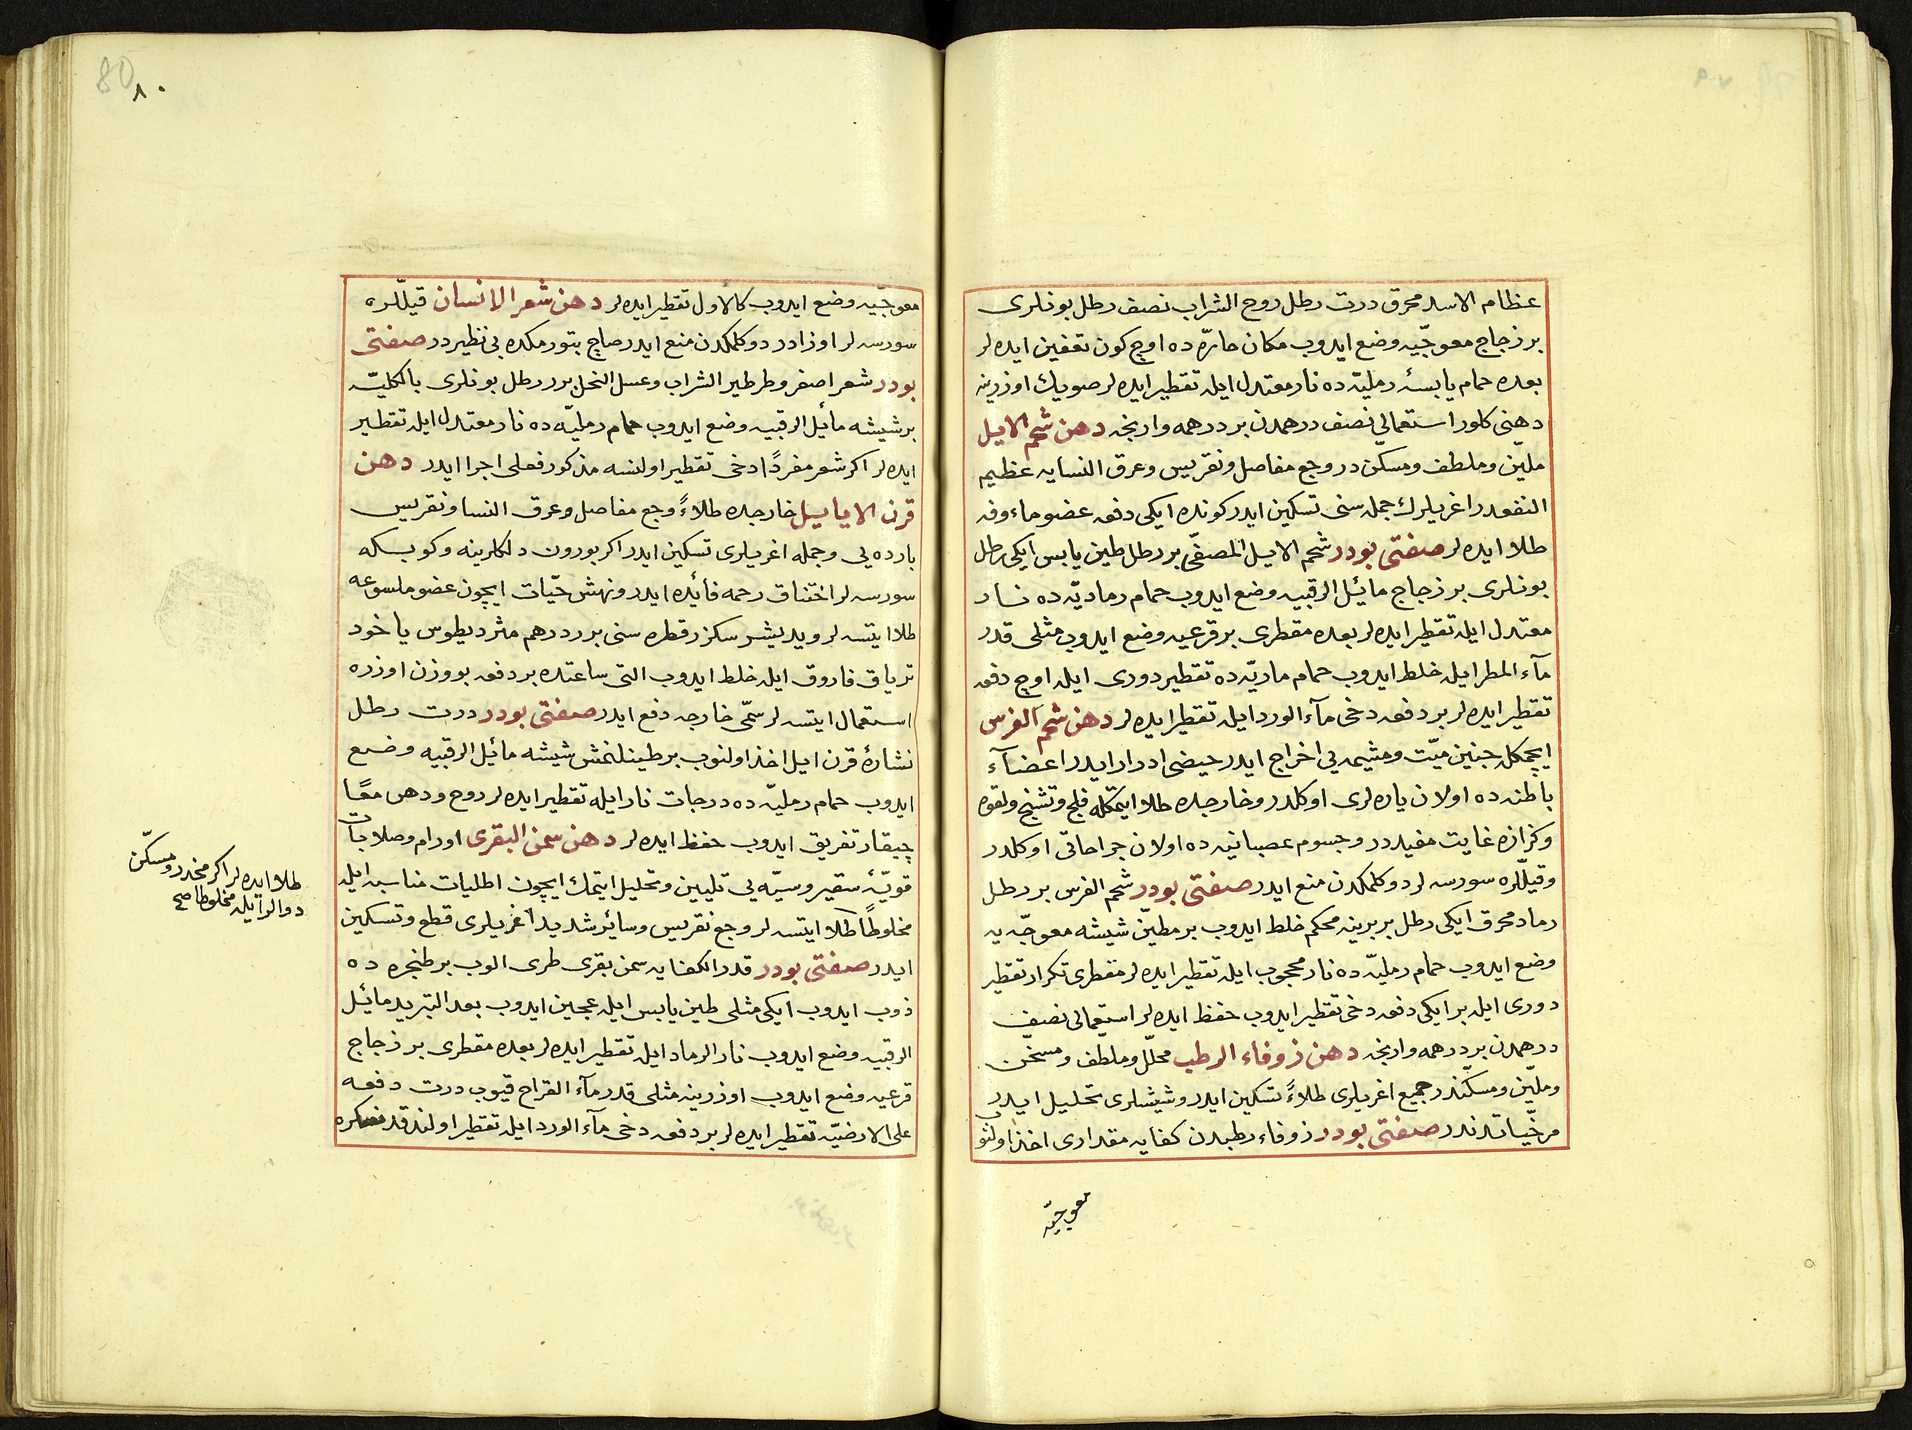 عظام الاسد محرق درت رطل روح الشراب نصف رطل بونلری
بر زجاج معوجّیه وضع ایدوب مکان حارّه ده اوچ کون تعفین ایده لر
بعده حمام یابسهٔ رملیّه ده نار معتدل ایله تقطیر ایده لر صویك اوزرینه
دهنی کلور استعمالی نصف درهمدن بر درهمه وارنجه دهن شحم الایل
ملین وملطف ومسکن در وجع مفاصل ونقریس وعرق النسایه عظیم
النفعدر اغریلرك جمله سنی تسکین ایدر کونده ایکی دفعه عضو ماءوفه
طلا ایده لر صفتی بودر شحم الایل المصفّی بر رطل طین یابس ایکی رطل
بونلری بر زجاج مائیل الرقبیه وضع ایدوب حمام رمادیّه ده نار
معتدل ایله تقطیر ایده لر بعده مقطری بر قرعیه وضع ایدوب مثلی قدر
مآء المطر ایله خلط ایدوب حمام ماریّه ده تقطیر دوری ایله اوچ دفعه
تقطیر ایده لر بر دفعه دخی مآء الورد ایله تقطیر ایده لر دهن شحم الفرس
ایچمکله جنین میّت ومشیمه یی اخراج ایدر حیضی ادرار ایدر اعضآء
باطنه ده اولان یاره لری اوکلدر وخارجده طلا ایتمکله فلج وتشنج ولقوه
وکزازه غایت مفیددر وجسوم عصبانیه ده اولان جراحاتی اوکلدر
وقیلّره سورسه لر دوکلمکدن منع ایدر صفتی بودر شحم الفرس بر رطل
رماد محرق ایکی رطل بر برینه محکم خلط ایدوب بر مطیّن شیشه معوجّه یه
وضع ایدوب حمام رملیّه ده نار محجوب ایله تقطیر ایده لر مقطری تکرار تقطیر
دوری ایله بر ایکی دفعه دخی تقطیر ایدوب حفظ ایده لر استعمالی نصف
درهمدن بر درهمه وارنجه دهن زوفاء الرطب محلّل وملطف ومسخّن
وملیّن ومسکّندر جمیع اغریلری طلاءً تسکین ایدر وشیشلری تحلیل ایدر
مرخّیاتدندر صفتی بودر زوفاء رطبدن کفایه مقداری اخذ اولنوب
معوجیّه
80
٨٠
معوجّیه وضع ایدوب کالاول تقطیر ایده لر دهن شعر الانسان قیلّره
سورسه لر اوزادر دوکلمکدن منع ایدر صاچ بتورمکده بی نظیردر صفتی
بودر شعر اصفر وطرطیر الشراب وعسل النحل برر رطل بونلری بالکلیّه
بر شیشه مائیل الرقبیه وضع ایدوب حمام رملیّه ده نار معتدل ایله تقطیر
ایده لر اکر شعر مفردًا دخی تقطیر اولنسه مذکور فعلی اجرا ایدر دهن
قرن الایاییل خارجده طلاءً وجع مفاصل وعرق النسا ونقریس
بارده یی وجمله اغریلری تسکین ایدر اکر بورون دلکلرینه وکوبکه
سورسه لر اختناق رحمه فائیده ایدر ونهش حیّات ایچون عضو ملسوعه
طلا ایتسه لر ویدیشر سکزر قطره سنی برر درهم مثردیطوس یاخود
تریاق فاروق ایله خلط ایدوب التی ساعتده بر دفعه بو وزن اوزره
استعمال ایتسه لر سمّی خارجه دفع ایدر صفتی بودر درت رطل
نشارهٔ قرن ایل اخذ اولنوب بر طینلنمش شیشه مائیل الرقبیه وضع
ایدوب حمام رملیّه ده درجات نار ایله تقطیر ایده لر روح ودهن معًا
چیقار تفریق ایدوب حفظ ایده لر دهن سمن البقری اورام وصلابات
قویّهٔ سقیروسیّه یی تلیین وتحلیل ایتمك ایچون اطلیات مناسبه ایله
مخلوطًا طلا ایتسه لر وجع نقریس وسائر شدید اغریلری قطع وتسکین
ایدر صفتی بودر قدر الکفایه سمن بقری طری الوب بر طنجره ده
ذوب ایدوب ایکی مثلی طین یابس ایله عجین ایدوب بعد التبرید مائیل
الرقبیه وضع ایدوب نار الرماد ایله تقطیر ایده لر بعده مقطری بر زجاج
قرعیه وضع ایدوب اوزرینه مثلی قدر مآء القراح قیوب درت دفعه
علی الارضیّه تقطیر ایده لر بر دفعه دخی مآء الورد ایله تقطیر اولنه
طلا ایده لر اکر مخدر ومسکّن
دوالر ایله مخلوطا صح